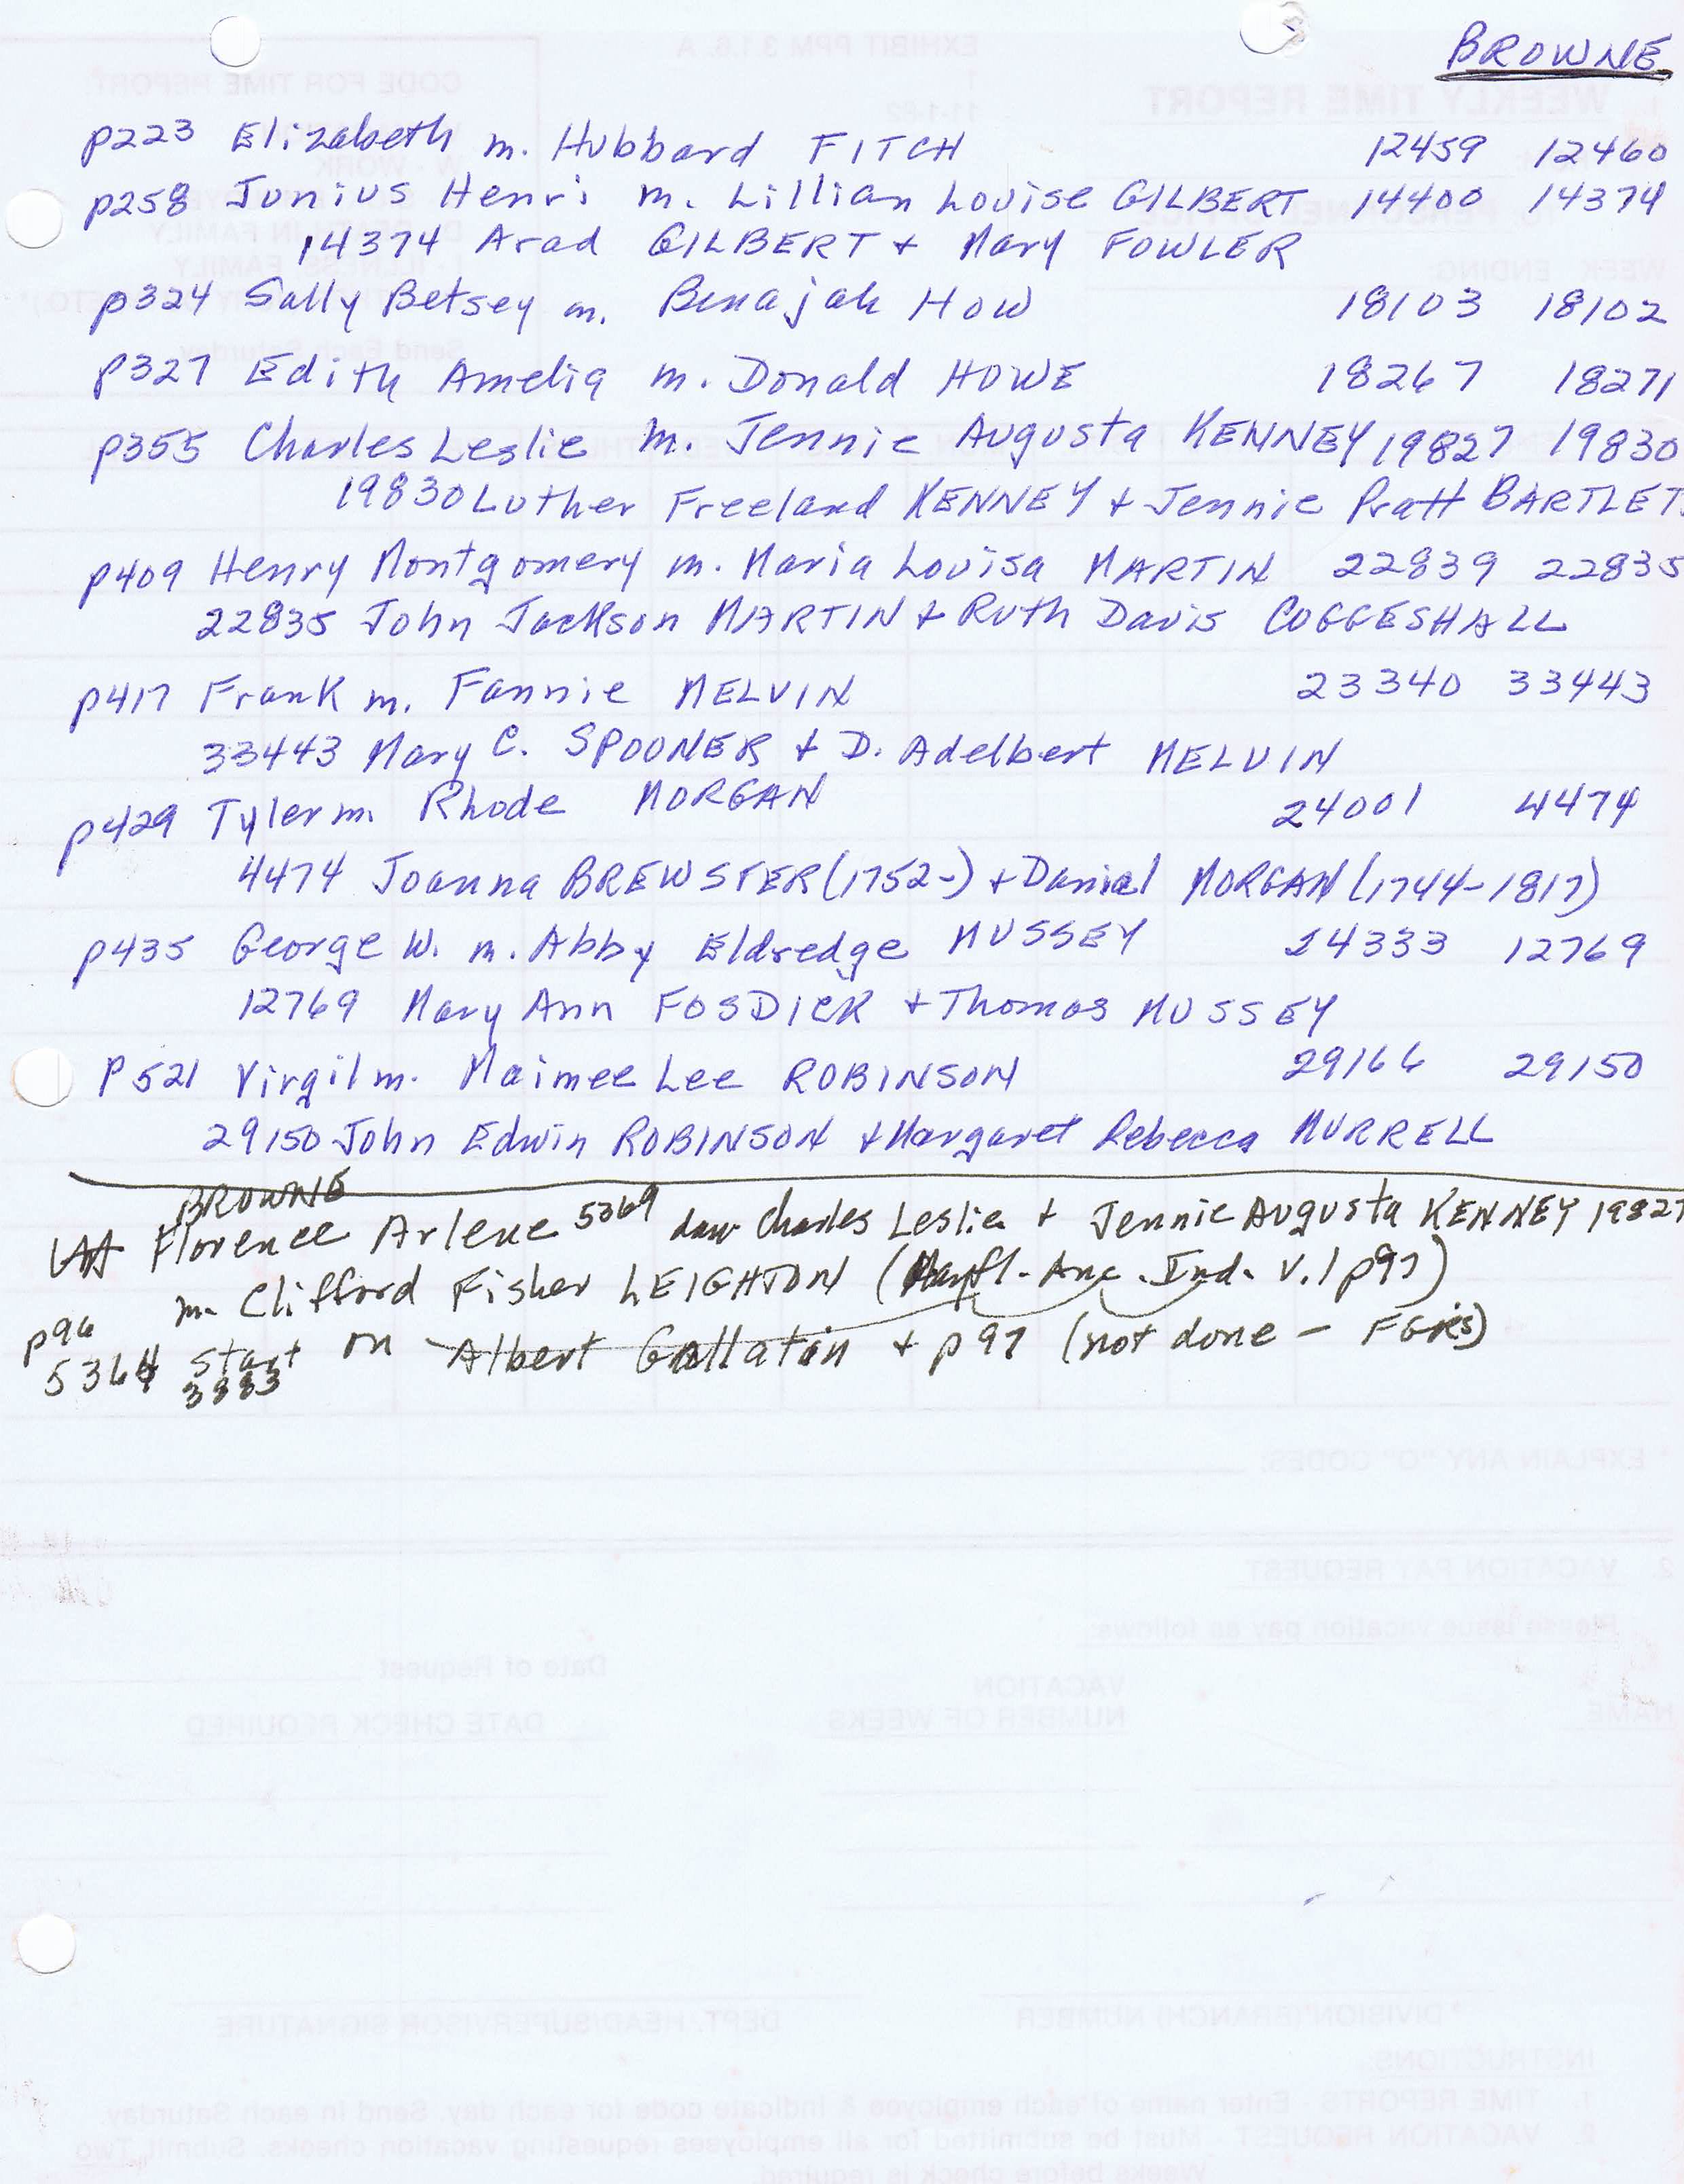 BROWNE
p223 Elizabeth m. Hubbard FITCH 12459 12460
p258 Junius Henri m. Lillian Louise GILBERT 14400 14374
14374 Arad GILBERT + Mary FOWLER
p324 Sally Betsey m. Benajah HOW 18103 18102
p327 Edith Amelia m. Donald HOWE 18267 18271
p355 Charles Leslie m. Jennie Augusta KENNEY 19827 19830
19830 Luther Freeland KENNEY + Jennie Pratt BARTLET
p409 Henry Montgomery m. Maria Louisa MARTIN 22839 22835
22835 John Jackson MARTIN + Ruth Davis COGGESHALL
p417 Frank m. Fannie MELVIN 23340 33443
33443 Mary C. SPOONER + D. Adelbert MELVIN
p429 Tyler m. Rhode MORGAN 24001 4474
4474 Joanna BREWSTER (1752-) + Daniel MORGAN (1744-1817)
p435 George W. m. Abby Eldredge MUSSEY 24333 12769
12769 Mary Ann FOSDICK + Thomas MUSSEY
P521 Virgil m. Maimee Lee ROBINSON 29166 29150
29150 John Edwin ROBINSON + Margaret Rebecca MURRELL
BROWNE
Florence Arlene 5369 dau Charles Leslie + Jennie Augusta KENNEY 19827
m. Clifford Fisher LEIGHTON (Mayfl. Anc. Ind. V.1 p97)
p96
5364 start on Albert Gallatin + p97 (not done - FGRs)
3383